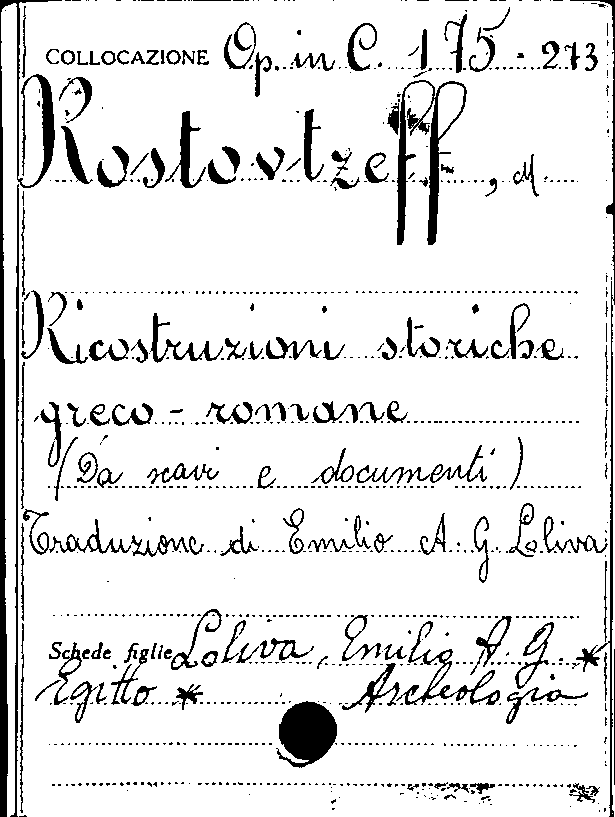 COLLOCAZIONE Op. in C. 175 - 273
Rostovtzeff, M.
Ricostruzioni storiche
greco - romane
(Da scavi e documenti)
Traduzione di Emilio A. G. Loliva
Schede figlie Loliva, Emilio A. G. *
Egitto * Archeologia